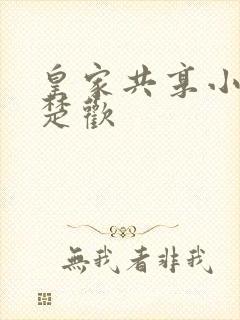 皇家共享小
楚歡
無我者非我